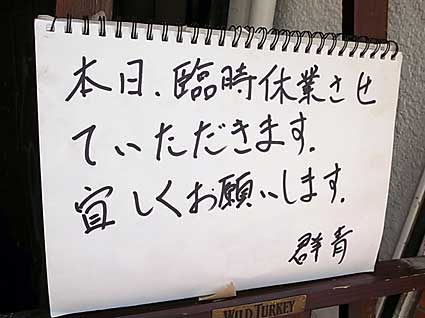 本日、臨時休業させ
ていただきます。
宜しくお願いします。
群青
WILD TURKEY